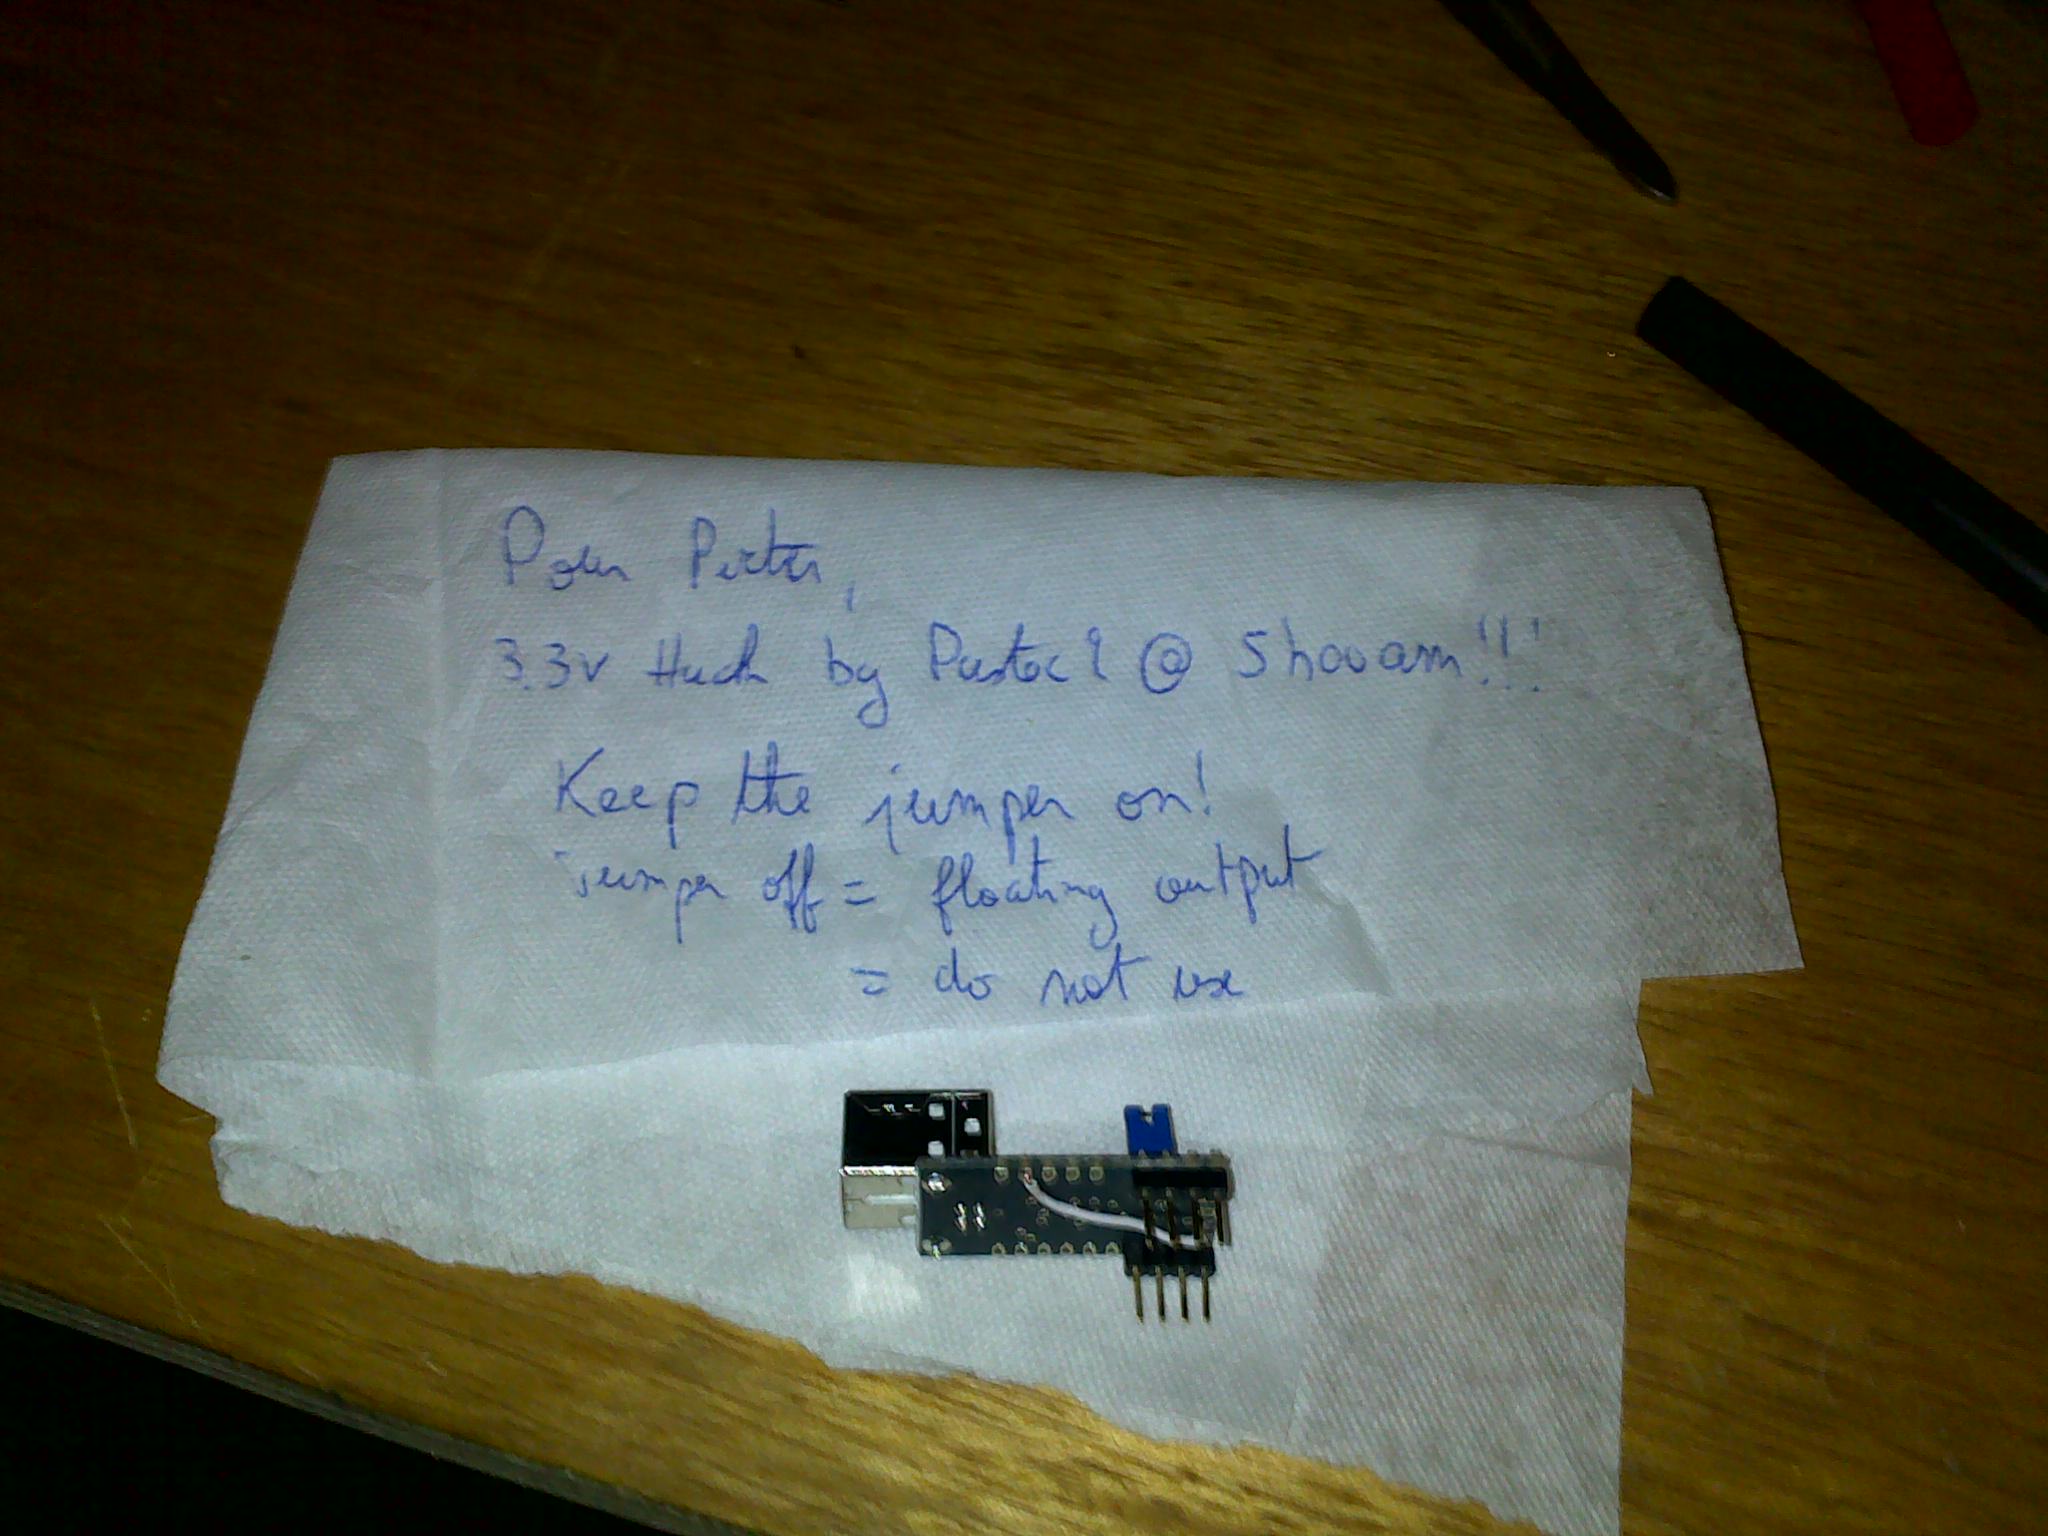 Pour Pieter,
3.3v Hack by @ Shavoam!!!
Keep the jumper on!
jumper off = floating output
= do not use